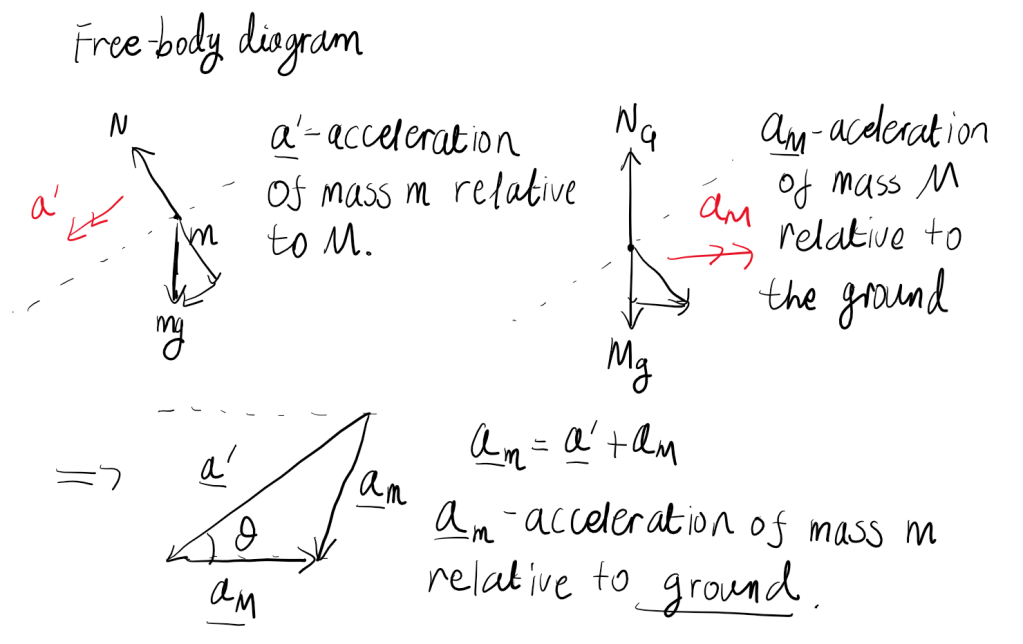 Free-body diagram
N
a'
m
mg
a'-acceleration
of mass m relative
to M.
N_G
a_M
Mg
a_M-aceleration
of mass M
relative to
the ground
=>
a'
θ
a_m
a_M
a_m = a' + a_M
a_m-acceleration of mass m
relative to ground.